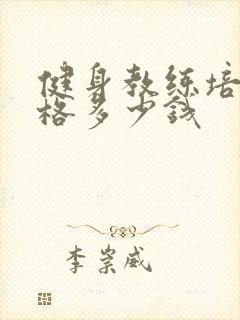 健身教练培
格多少钱
李崇威